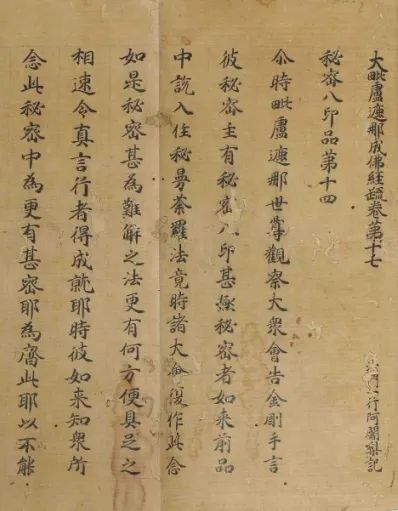 大毗盧遮那成佛經疏卷第十七
沙門一行阿闍梨記
秘密八印品第十四
尒時毗盧遮那世尊觀察大衆會告金剛手言
彼秘密主有秘密八印甚極秘密者如来前品
中說入住秘曼荼羅法竟時諸大會復作此念
如是秘密甚為難解之法更有何方便具足之
相速令真言行者得成就耶時彼如来知衆所
念此秘密中為更有甚密耶為齊此耶以不能